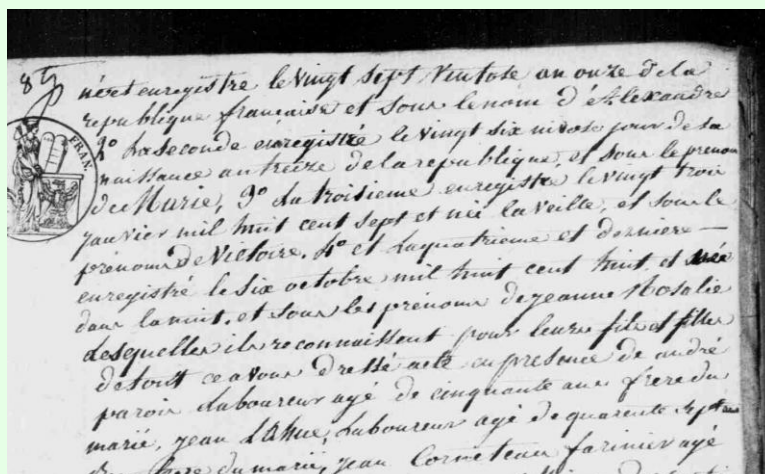 85
né et enregistré le vingt sept ventose an onze de la
republique francaise et sous le nom d'Alexandre
2º La seconde enregistré le vingt six nivose jour de sa
naissance an treize de la republique, et sous le prenom
de Marie, 3º La troisieme enregistré le vingt trois
FRAN.
janvier mil huit cent sept et née la veille, et sous le
prénom de Victoire. 4º et La quatrieme et derniere —
enregistré le six octobre mil huit cent huit et née
dans la nuit, et sous les prénoms de jeanne Rosalie
Lesquelles ils reconnaissent pour leurs fils et filles
de tout ce avons dressé acte en presence de andré
parois Laboureur agé de cinquante ans frere du
marié, jean Lahue, Laboureur agé de quarente sept ans
du marié, jean Corneteau farinier agé